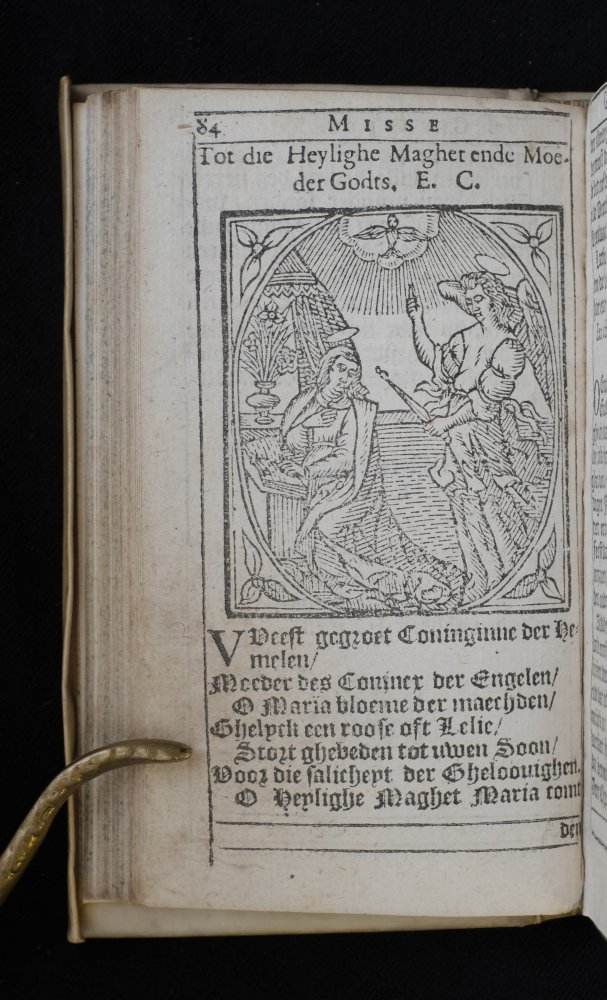 84 MISSE
Tot die Heylighe Maghet ende Moe-
der Godts. E. C.
VVeest gegroet Coninginne der He-
melen/
Moeder des Conincx der Engelen/
O Maria bloeme der maechden/
Ghelyck een roose oft Lelie/
Stort ghebeden tot uwen Soon/
Voor die salicheyt der Gheloovighen.
O Heylighe Maghet Maria comt
den